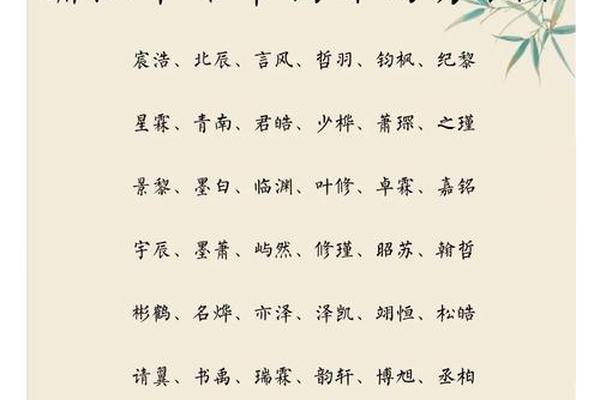 宸浩、北辰、言风、哲羽、钧枫、纪黎
星霖、青南、君皓、少桦、萧琛、之瑾
景黎、墨白、临渊、叶修、卓霖、嘉铭
宇辰、墨萧、屿然、修瑾、昭苏、翰哲
彬鹤、名烨、亦泽、泽凯、翊恒、松皓
请翼、书禹、瑞霖、韵轩、博旭、丞柏